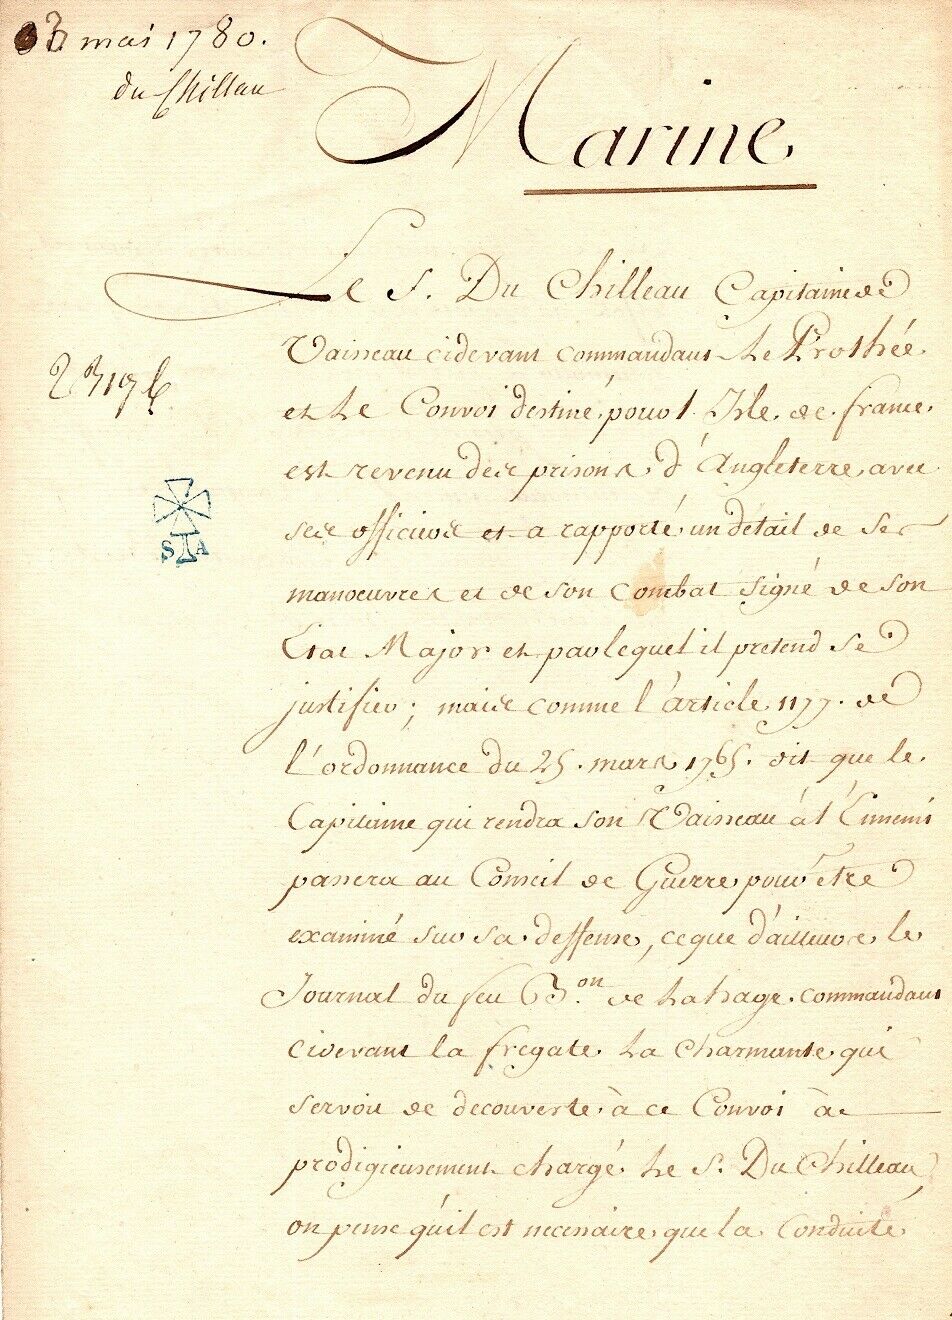 mai 1780.
du Chillau
Marine
Le S. Du Chilleau Capitaine de
Vaisseau cidevant commandant Le Prothée
et Le Convoi destiné pour l'Isle de france
est revenu des prisons d'Angleterre avec
ses officiers et a rapporté un détail de Ses
manoeuvres et de son Combat signé de son
Etat Major et par lequel il pretend Se
justifier ; mais comme l'article 1177. de
l'ordonnance du 25. mars 1765. dit que le
Capitaine qui rendra son Vaisseau à l'Ennemi
passera au Conseil de Guerre pour être
examiné sur sa deffense, ceque d'ailleurs le
Journal du feu B.on de La haye commandant
cidevant la fregate La Charmante qui
servoit de decouverte à ce Convoi à
prodigieusement chargé Le S. Du Chilleau,
on pense qu'il est necessaire que la Conduite
S A